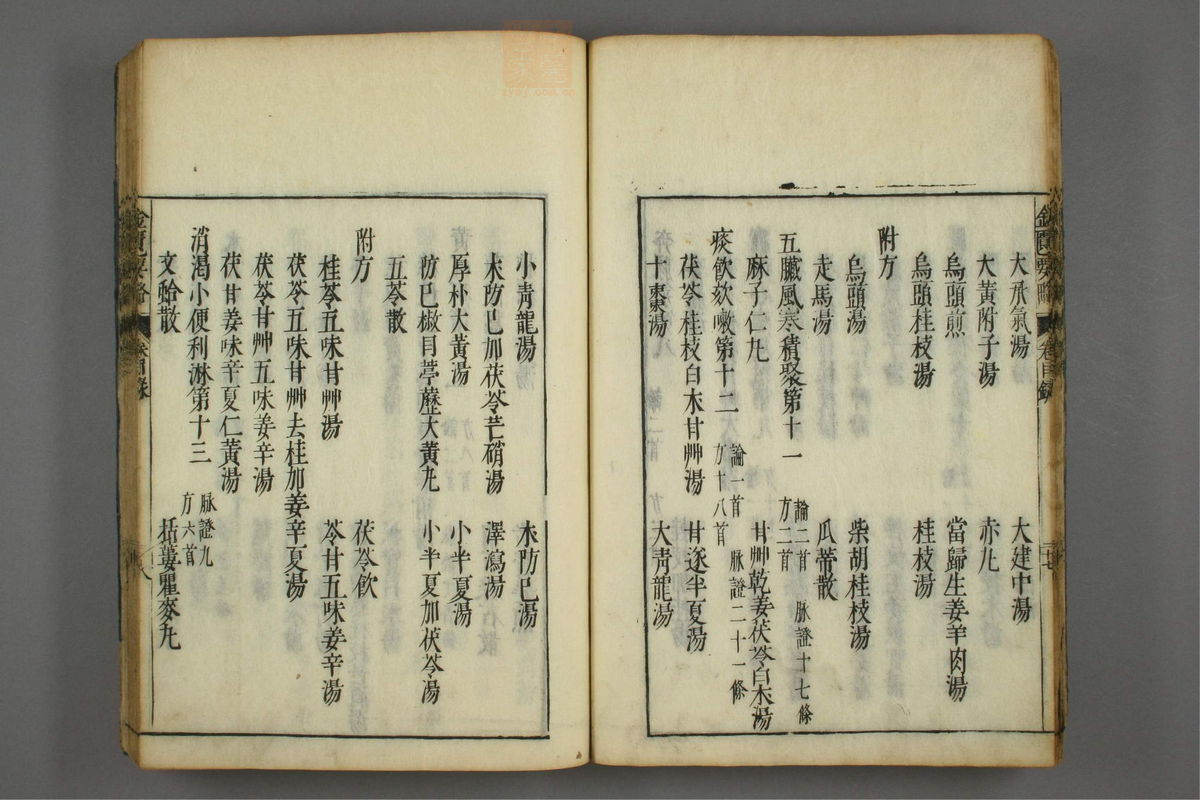 大承氣湯 大建中湯
大黃附子湯 赤丸
烏頭煎 當歸生姜羊肉湯
烏頭桂枝湯 桂枝湯
附方
烏頭湯 柴胡桂枝湯
走馬湯 瓜蒂散
五臟風寒積聚第十一 論二首 脉證十七條 方二首
麻子仁丸 甘艸乾姜茯苓白朮湯
痰飲欬嗽第十二 論一首 脉證二十一條 方十八首
茯苓桂枝白朮甘艸湯 甘逐半夏湯
十棗湯 大青龍湯
小青龍湯 木防巳湯
木防巳加茯苓芒硝湯 澤瀉湯
厚朴大黃湯 小半夏湯
防巳椒目葶藶大黃丸 小半夏加茯苓湯
五苓散
附方 茯苓飲
桂苓五味甘艸湯 苓甘五味姜辛湯
茯苓五味甘艸去桂加姜辛夏湯
茯苓甘艸五味姜辛湯
茯甘姜味辛夏仁黃湯
消渴小便利淋第十三 脉證九 方六首
文蛤散 栝蔞瞿麥丸
金匱要略
目錄
八